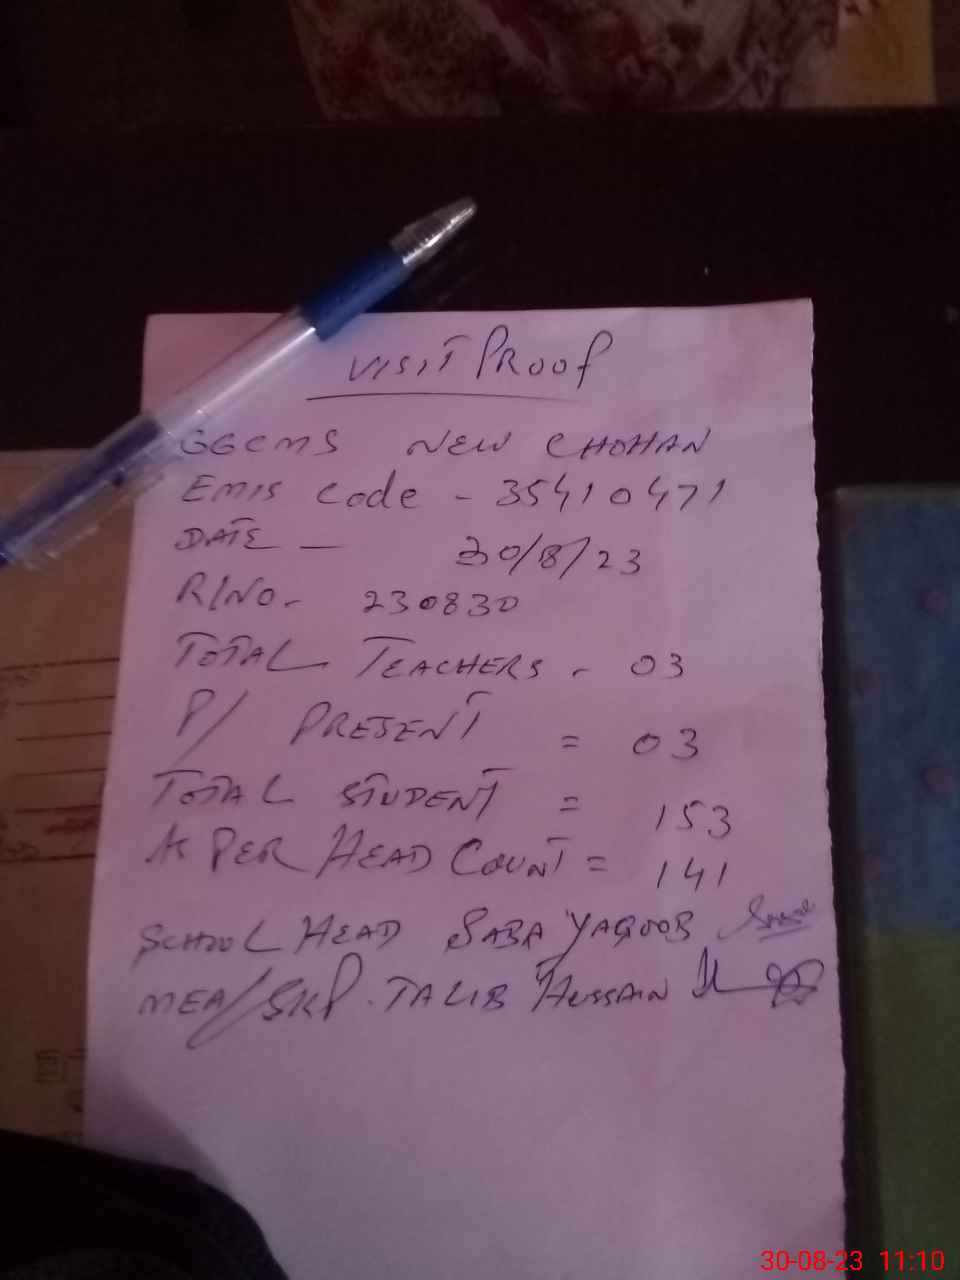 VISIT PROOF
GGCMS NEW CHOHAN
EMIS Code - 35410471
DATE — 30/8/23
R/NO. 230830
TOTAL TEACHERS - 03
P/ PRESENT = 03
TOTAL STUDENT = 153
AS PER HEAD COUNT = 141
SCHOOL HEAD SABA YAQOOB
MEA/SKP. TALIB HUSSAIN
30-08-23 11:10